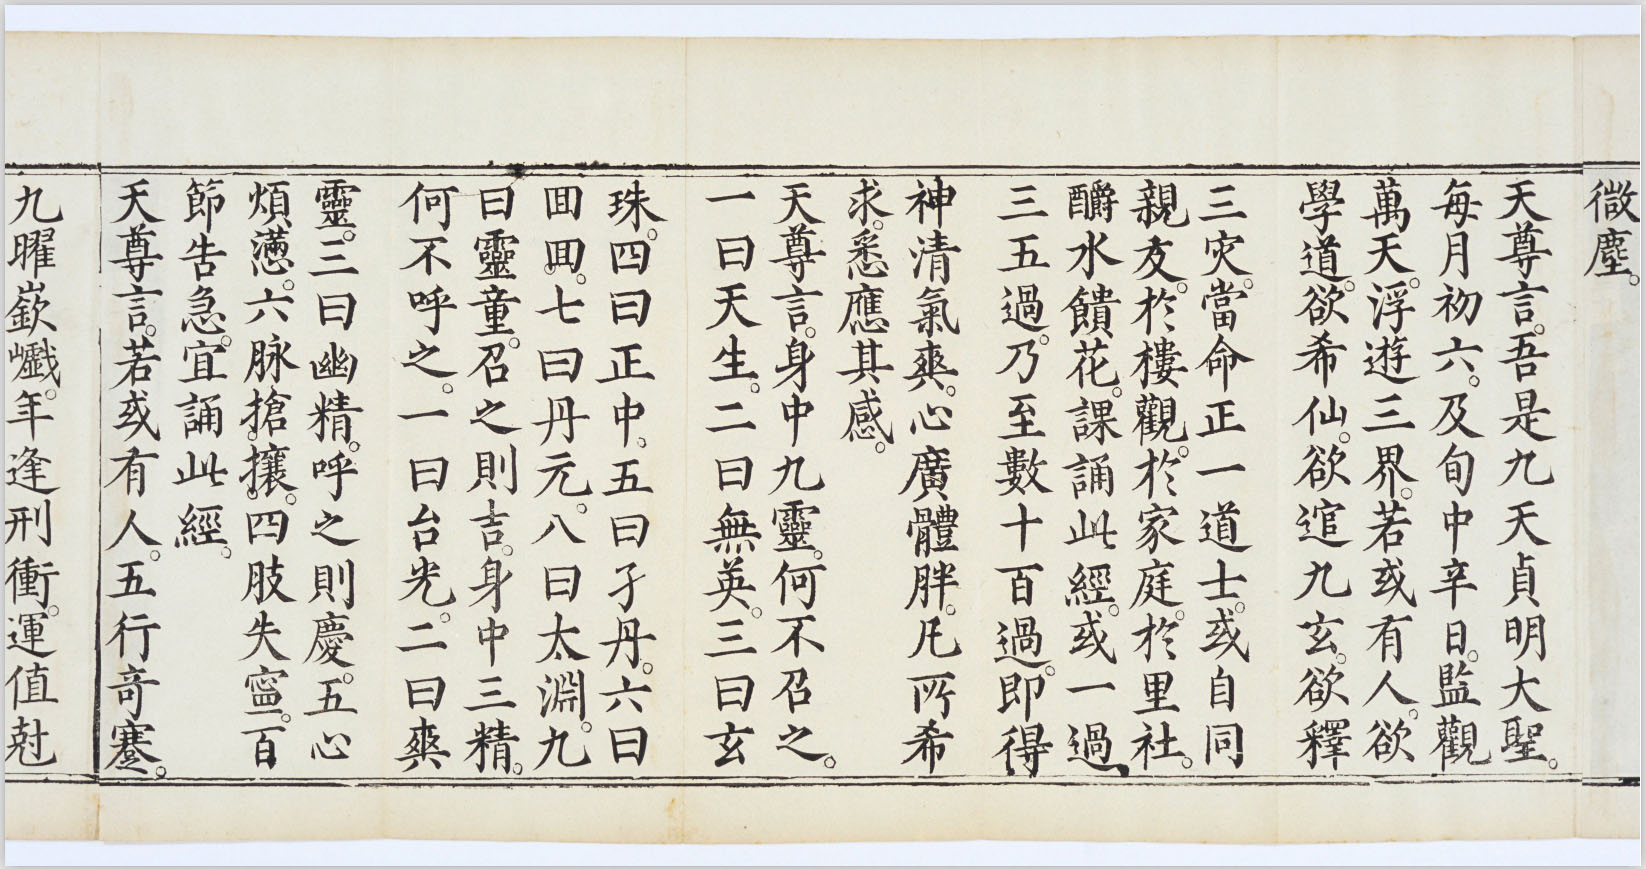 微塵。
天尊言。吾是九天貞明大聖。
每月初六。及旬中辛日。監觀
萬天。浮遊三界。若或有人。欲
學道。欲希仙。欲逭九玄。欲釋
三灾。當命正一道士。或自同
親友。於樓觀。於家庭。於里社。
醮水饋花。課誦此經。或一過。
三五過。乃至數十百過。即得
神清氣爽。心廣體胖。凡所希
求。悉應其感。
天尊言。身中九靈。何不召之。
一曰天生。二曰無英。三曰玄
珠。四曰正中。五曰孑丹。六曰
回回。七曰丹元。八曰太淵。九
曰靈童。召之則吉。身中三精。
何不呼之。一曰台光。二曰爽
靈。三曰幽精。呼之則慶。五心
煩懣。六脉搶攘。四肢失寧。百
節告急。宜誦此經。
天尊言。若或有人。五行竒蹇。
九曜嶔巇。年逢刑衝。運值尅